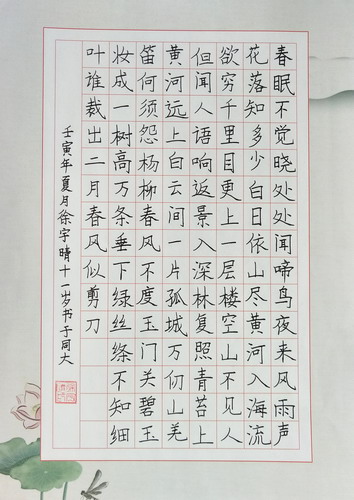 春眠不觉晓处处闻啼鸟夜来风雨声
花落知多少白日依山尽黄河入海流
欲穷千里目更上一层楼空山不见人
但闻人语响返景入深林复照青苔上
黄河远上白云间一片孤城万仞山羌
笛何须怨杨柳春风不度玉门关碧玉
妆成一树高万条垂下绿丝绦不知细
叶谁裁出二月春风似剪刀
壬寅年夏月徐宇晴十一岁书于同大